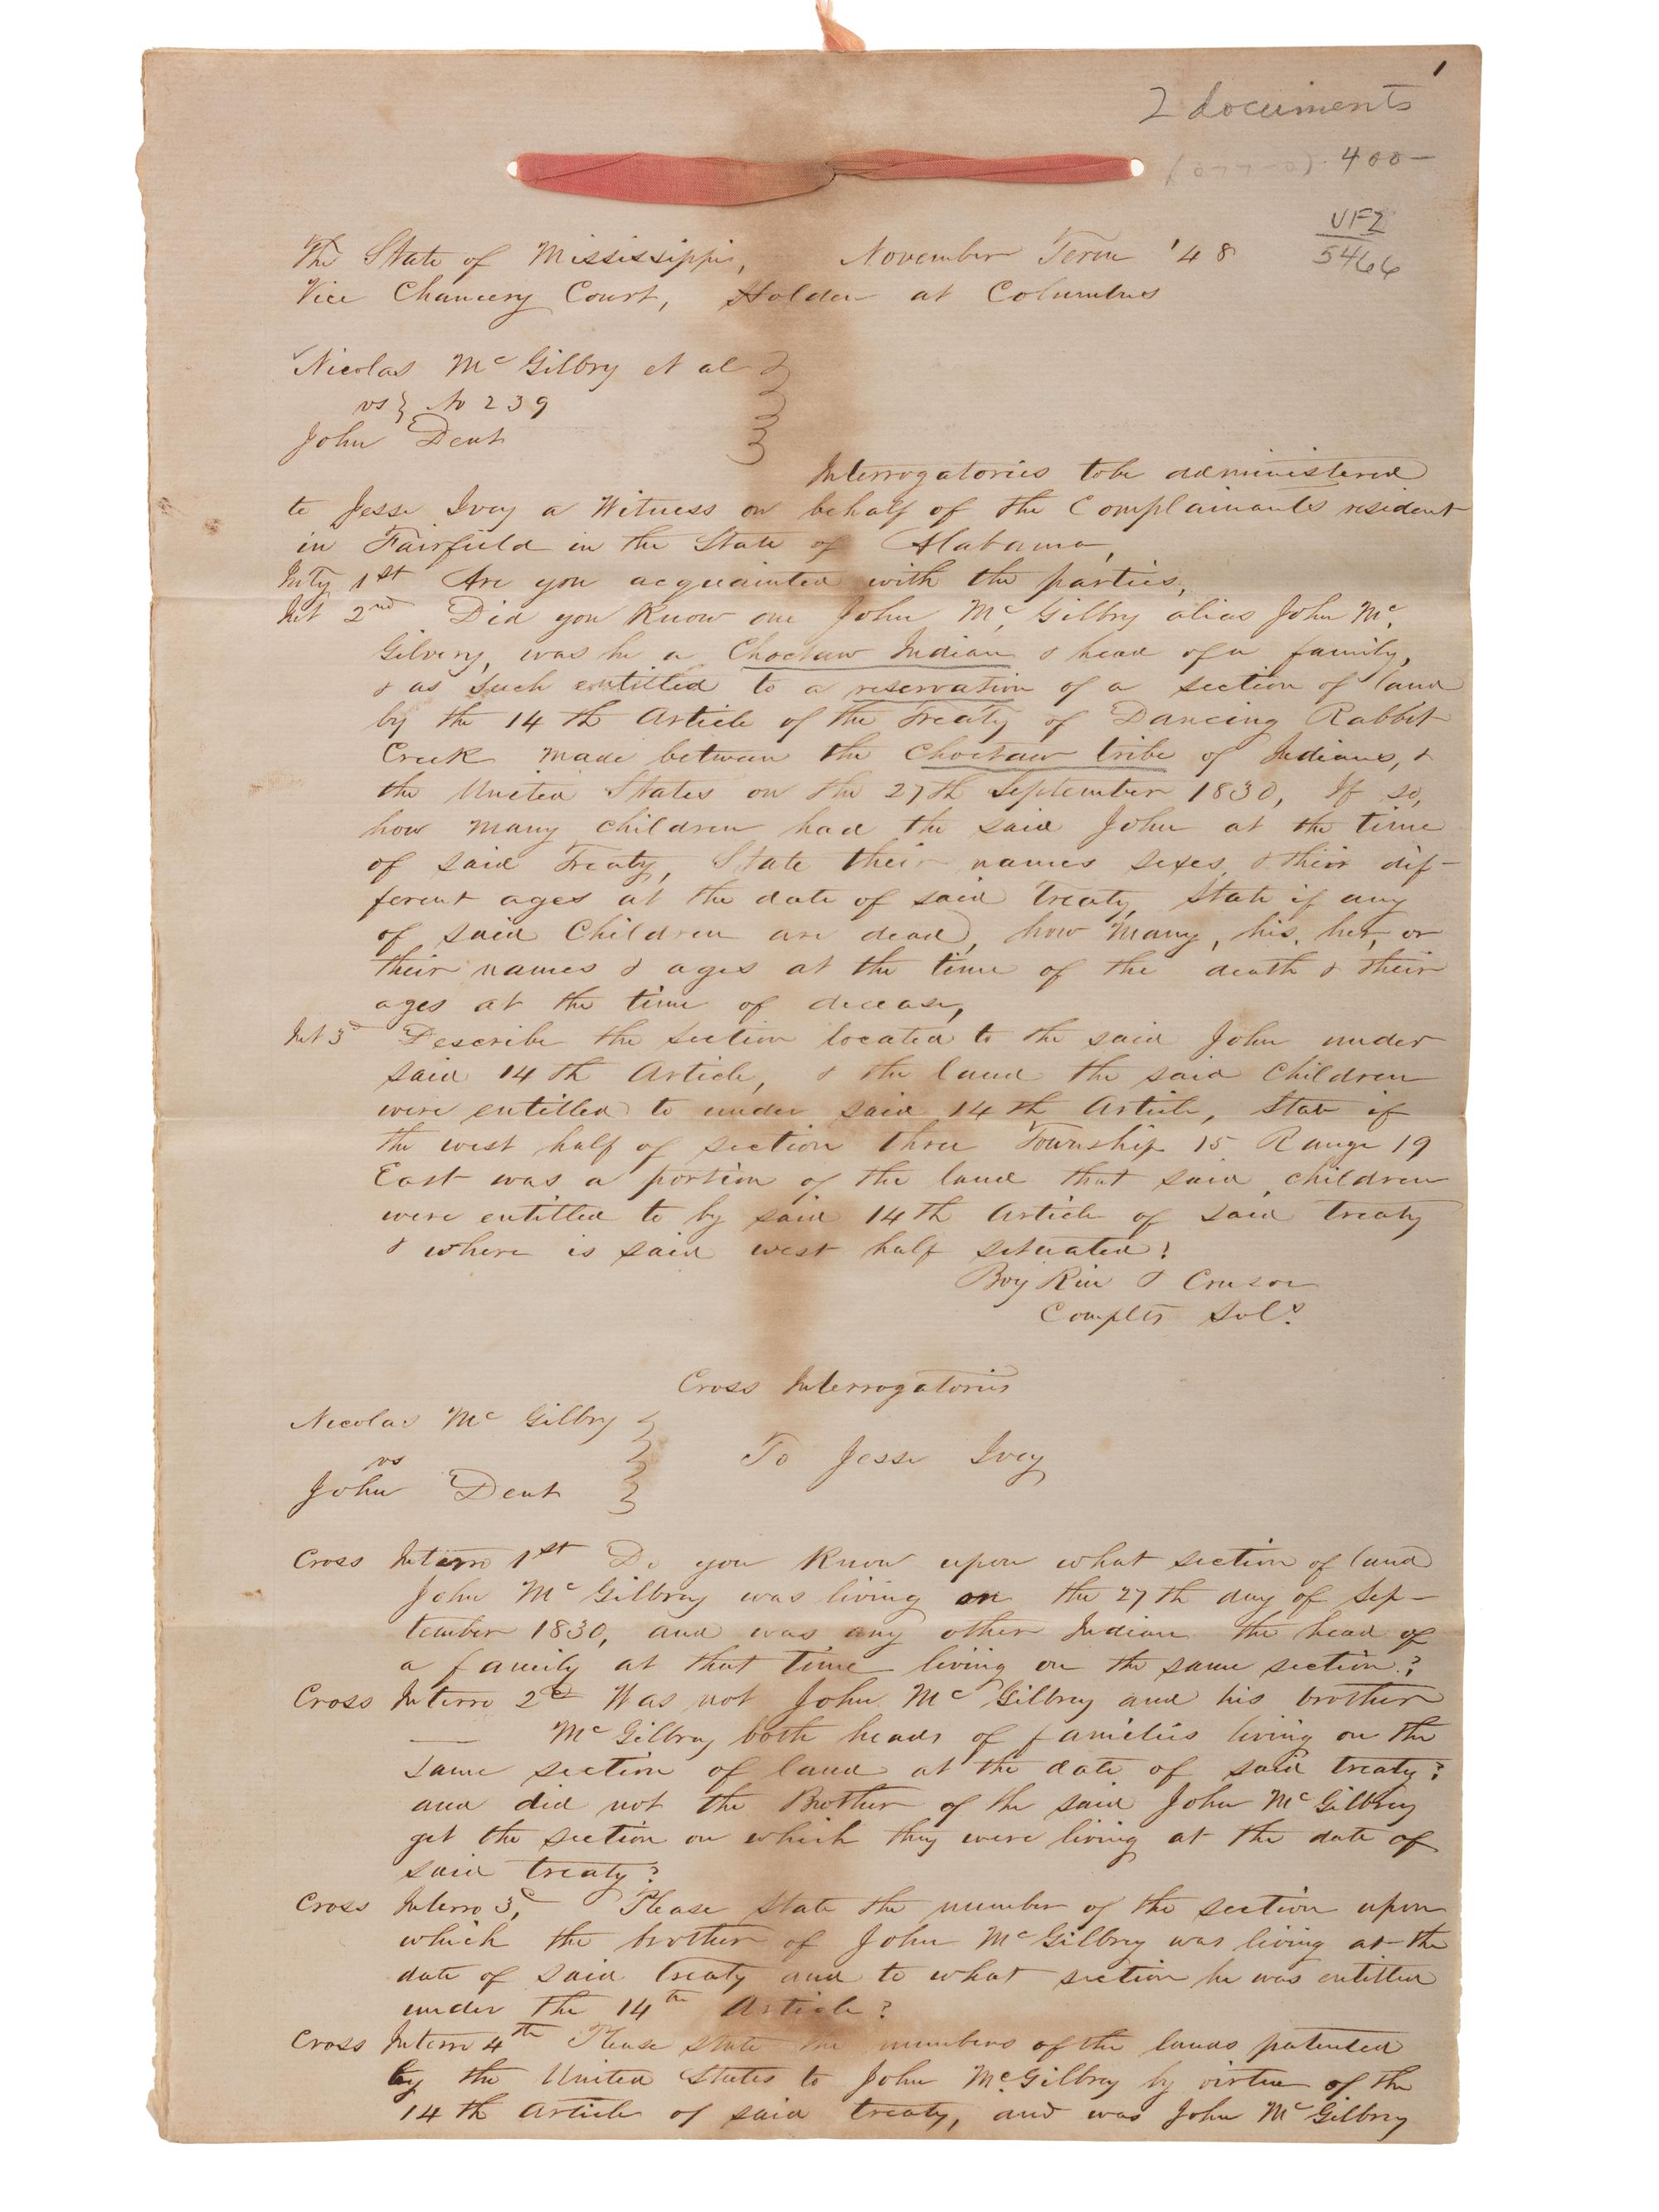 1
2 documents
400-
VFZ
5466
The State of Mississippi, November Term '48
Vice Chancery Court, Holden at Columbus
Nicolas Mc Gilbry et al
vs No 239
John Dent
Interrogatories to be administered
to Jesse Ivey a Witness on behalf of the Complainants resident
in Fairfield in the State of Alabama,
Inty 1st Are you acquainted with the parties,
Int 2nd Did you Know one John Mc. Gilbry alias John Mc.
Gilvery, was he a Choctaw Indian & head of a family,
& as such entitled to a reservation of a section of land
by the 14th Article of the Treaty of Dancing Rabbit
Creek made between the Choctaw tribe of Indians, &
the United States on the 27th September 1830, If so,
how many children had the said John at the time
of said Treaty, State their names sexes & their dif-
ferent ages at the date of said treaty, State if any
of said Children are dead, how many, his, her, or
their names & ages at the time of the death & their
ages at the time of decease,
Int 3d Describe the section located to the said John under
said 14th Article, & the land the said Children
were entitled to under said 14th Article, State if
the west half of section three Township 15 Range 19
East was a portion of the land that said children
were entitled to by said 14th Article of said treaty
& where is said west half situated?
BoyKin & Crusoe
Complts Sols.
Cross Interrogatories
Nicolas Mc Gilbry
vs To Jesse Ivey
John Dent
Cross Interro 1st Do you Know upon what section of land
John Mc Gilbrey was living on the 27th day of Sep-
tember 1830, and was any other Indian the head of
a family at that time living on the same section?
Cross Interro 2d Was not John Mc Gilbrey and his brother
— Mc Gilbrey both heads of families living on the
same section of land at the date of said treaty?
and did not the Brother of the said John Mc Gilbrey
get the section on which they were living at the date of
said treaty?
Cross Interro 3d, Please state the number of the section upon
which the brother of John Mc Gilbrey was living at the
date of said treaty and to what section he was entitled
under the 14th Article?
Cross Interro 4th Please state the numbers of the lands patented
by the United States to John Mc. Gilbrey by virtue of the
14th Article of said treaty, and was John Mc Gilbrey